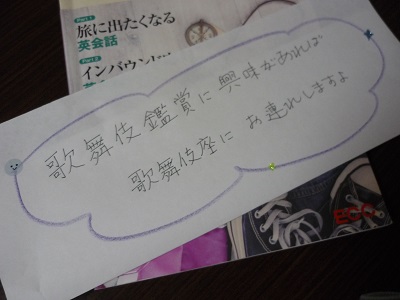 Part 1
旅に出たくなる
英会話
Part 2
歌舞伎鑑賞に興味があれば
歌舞伎座にお連れしますよ
ECC